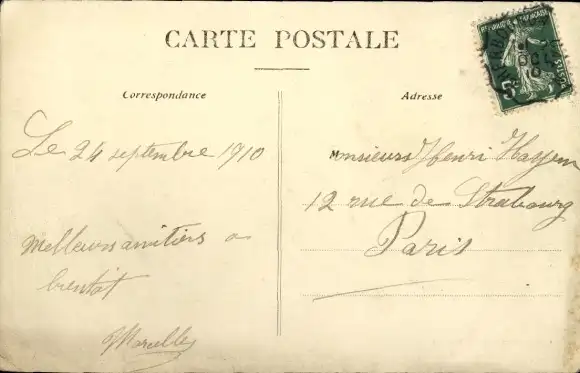 CARTE POSTALE
Correspondance
Adresse
Le 24 septembre 1910
Meilleurs amitiés a
bientôt
Marcelle
Monsieurs Henri Hayem
12 rue de Strabourg
Paris
RÉPUBLIQUE FRANÇAISE
5c
POSTES